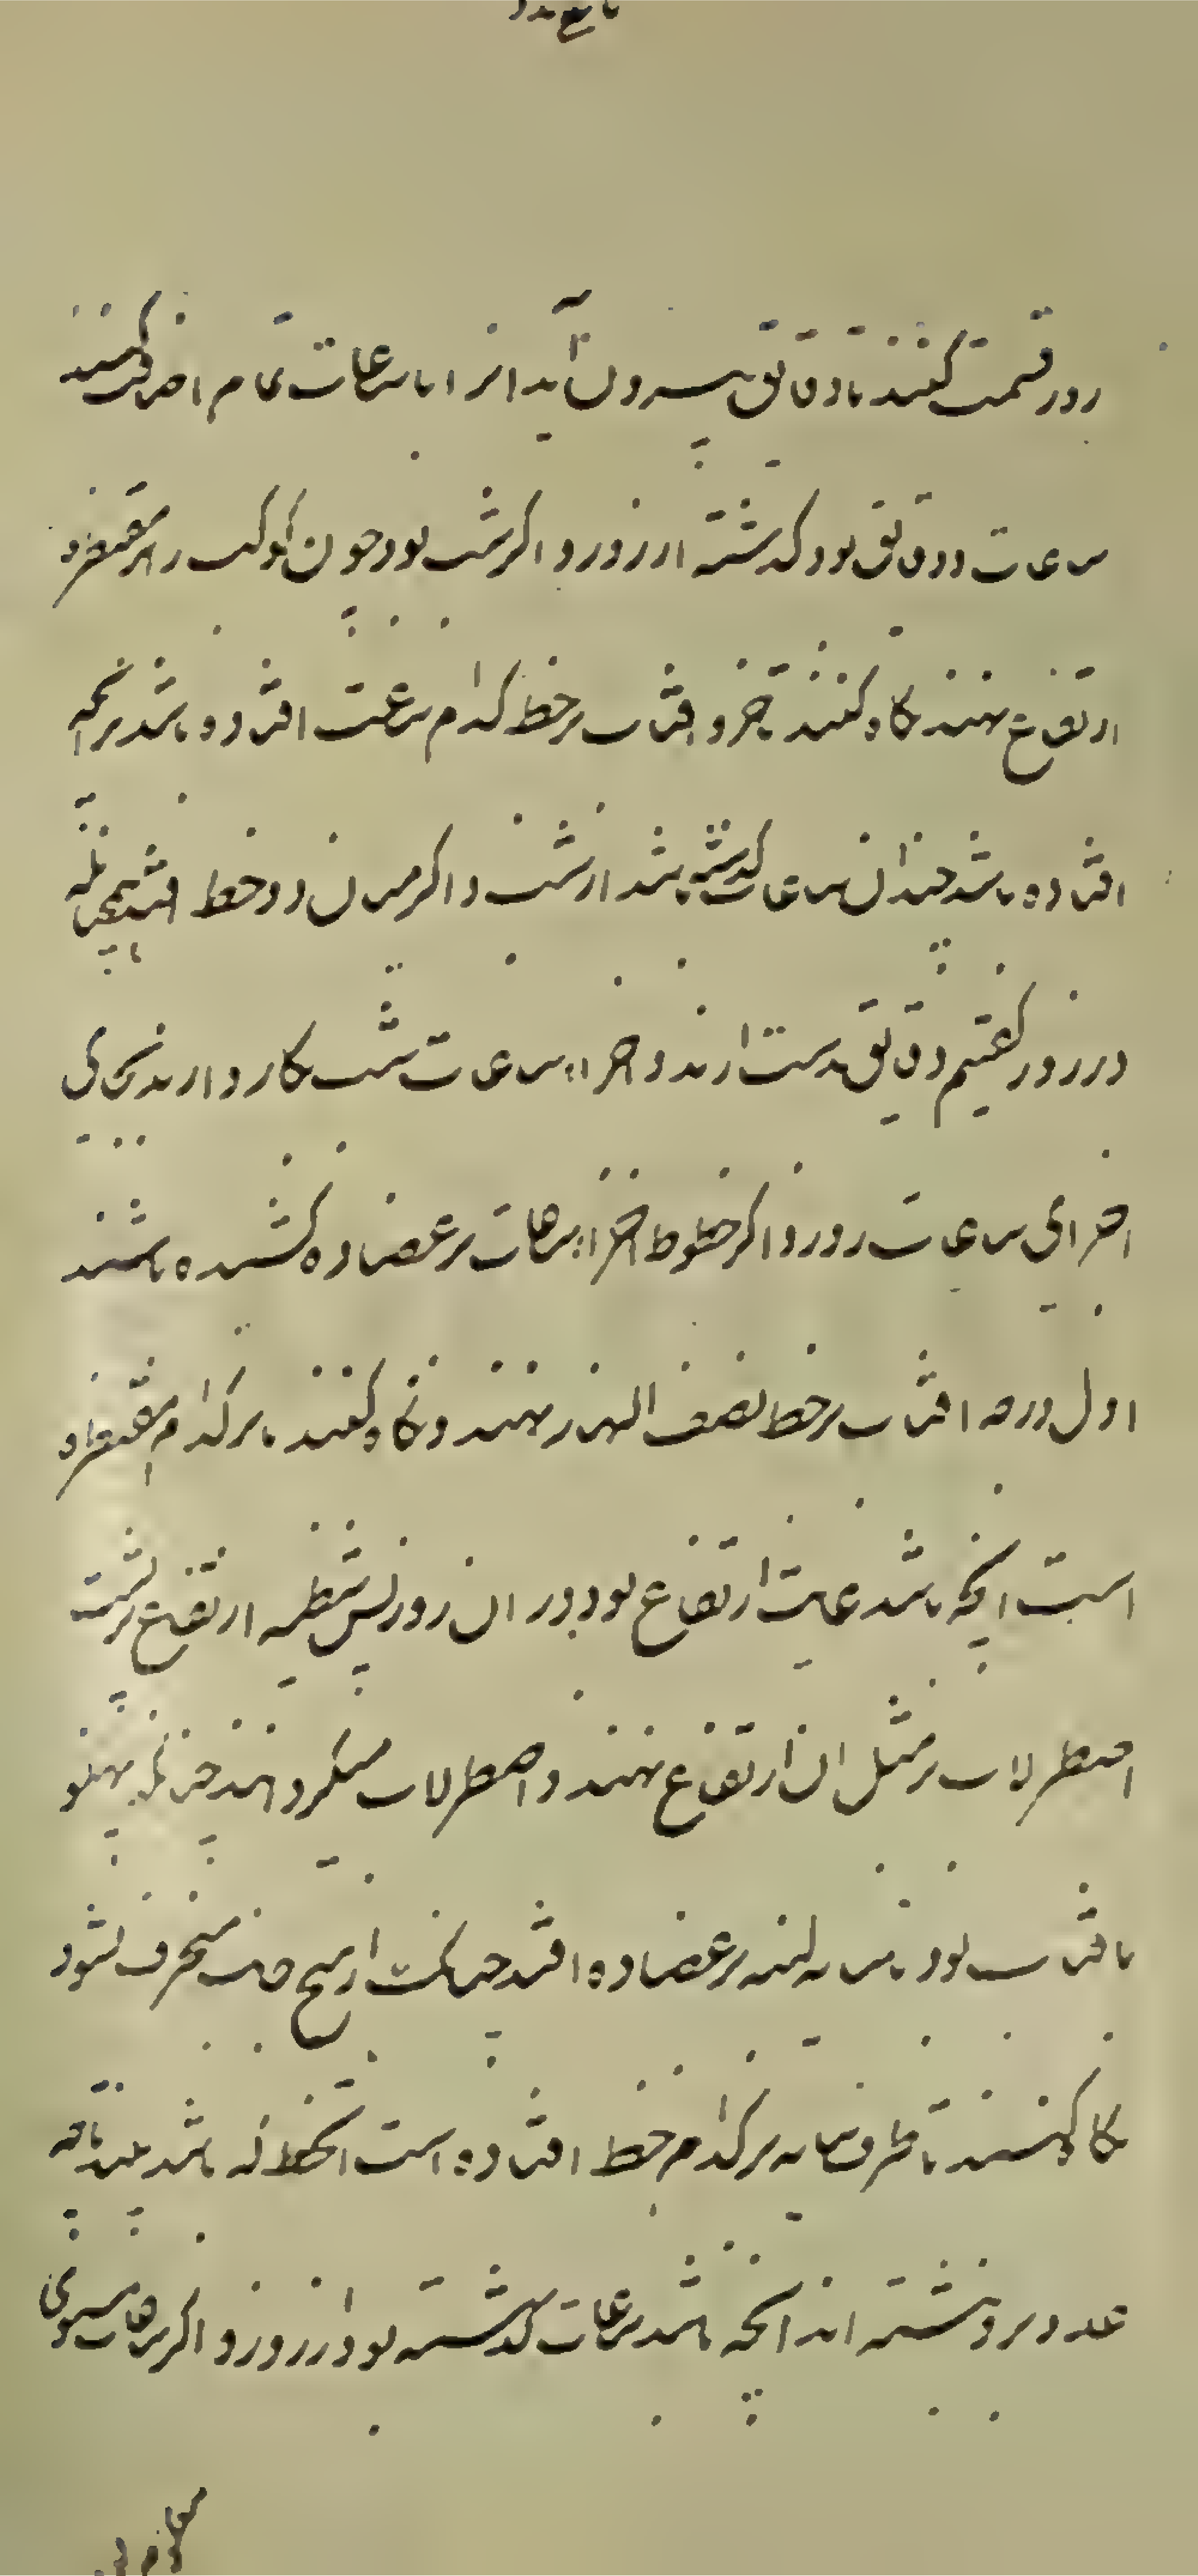 روز قسمت کنند تا دقایق بیرون آید انرا با ساعات تمام اضافت کنند
ساعات و دقایق بود گذشته از روز و اگر شب بود چون کوکب را بر مقنطره
ارتفاع نهند نگاه کنند تا جزو افتاب بر خط کدام ساعت افتاده باشد بر انچه
افتاده باشد چندان ساعات گذشته باشد از شب و اگر میان دو خط افتد همچنانکه
در روز گفتیم دقایق بدست ارند و اجزاء ساعات شب بکار دارند بجای
اجزای ساعات روز و اگر خطوط اجزاء ساعات بر عضاده کشیده باشند
اول درجه افتاب بر خط نصف النهار نهند و نگاه کنند تا بر کدام مقنطره
است انچه باشد غایت ارتفاع بود در ان روز پس شظیه ارتفاع بر پشت
اصطرلاب بر مثل ان ارتفاع نهند و اصطرلاب میگردانند چنانکه پهلو
با افتاب بود تا سایه لبنه بر عضاده افتد چنانکه از هیچ جانب منحرف نشود
نگاه کنند تا طرف سایه بر کدام خط افتاده است انخط که باشد ببینند تا چه
عدد بر و نبشته اند انچه باشد ساعات گذشته بود از روز و اگر ساعات مستوی